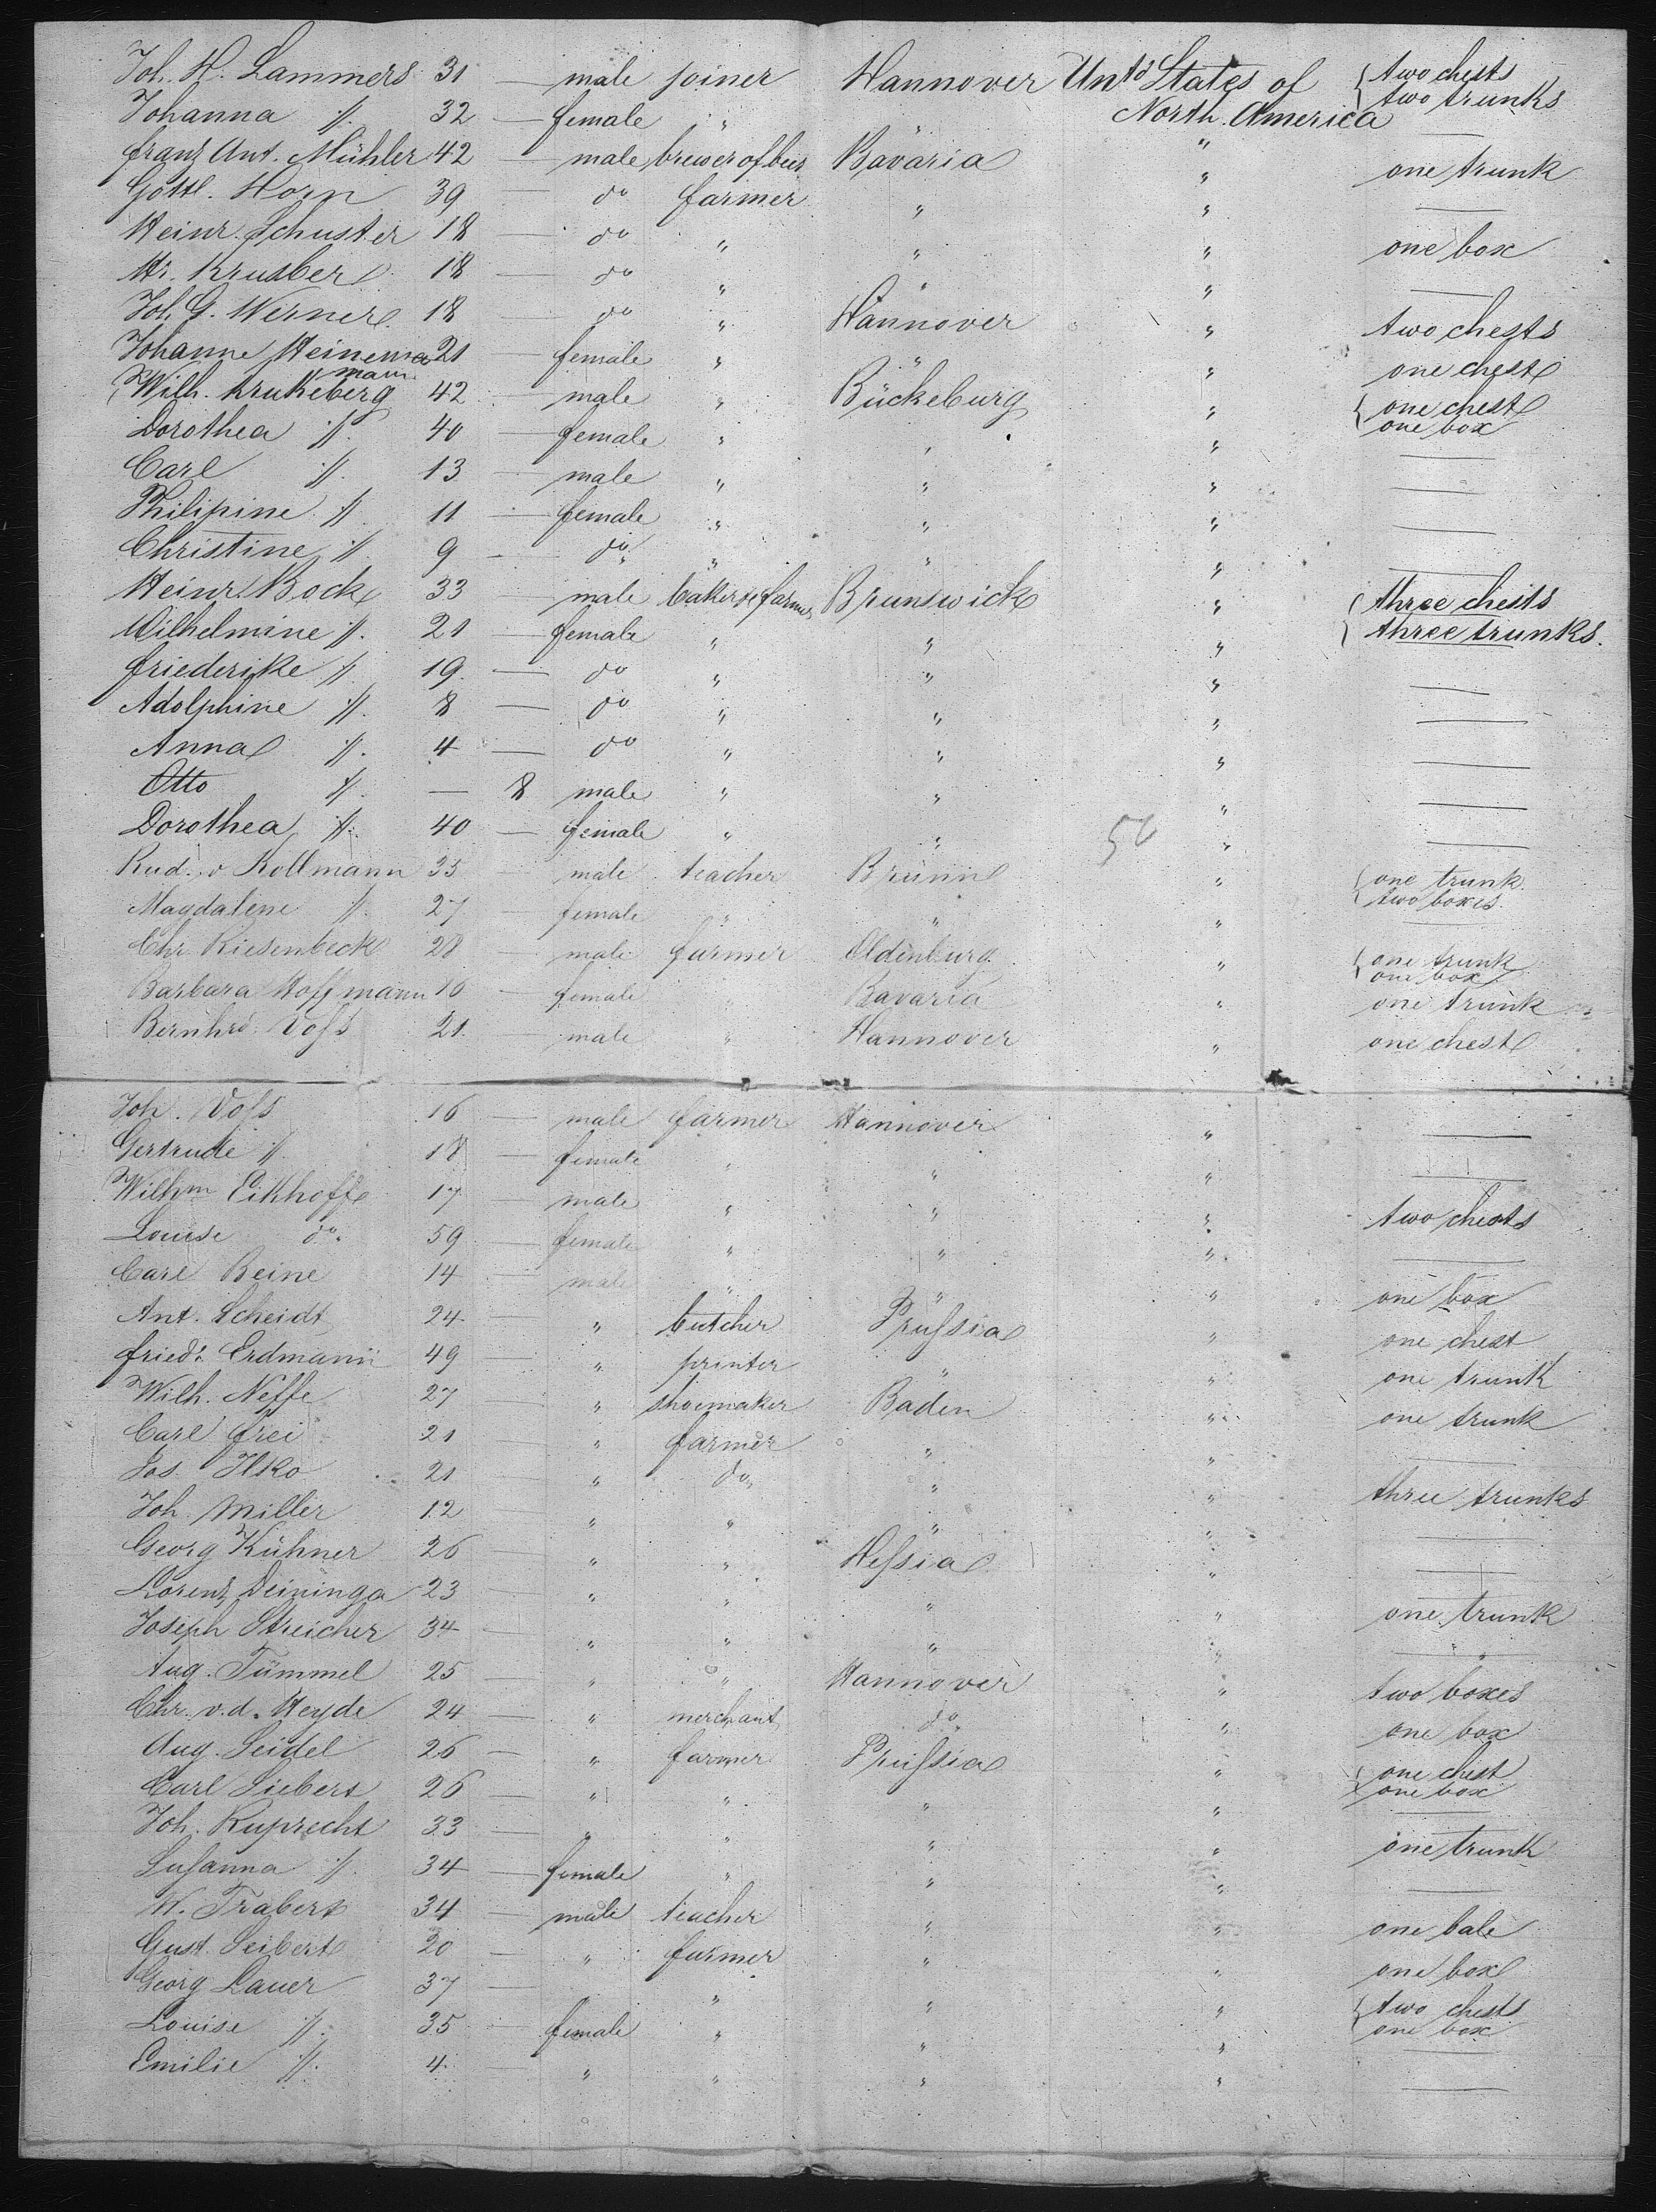 Joh. H. Lammers 31 — male joiner Hannover Untd States of North America { two chests two trunks
Johanna ". 32 — female " " " —
Franz Ant. Mühler 42 — male brewer of beer Bavaria " one trunk
Gottl. Horn 39 — do farmer " " —
Heinr. Schuster 18 — do " " " one box
Hr. Krusber 18 — do " " " —
Joh. G. Werner 18 — do " Hannover " two chests
Johanne Heinemann 21 — female " " " one chest
Wilh. Krukeberg 42 — male " Bückeburg " { one chest one box
Dorothea ". 40 — female " " " —
Carl ". 13 — male " " " —
Philipine ". 11 — female " " " —
Christine ". 9 — do " " " —
Heinr. Bock 33 — male baker & farmer Brunswick " { three chests three trunks.
Wilhelmine ". 21 — female " " "
Friederike ". 19. — do " " " —
Adolphine ". 8 — do " " " —
Anna ". 4 — do " " " —
Otto ". — 8 male " " " —
Dorothea ". 40 — female " " 56 " —
Rud. v Kollmann 35 — male teacher Brünn " { one trunk two boxes.
Magdalene ". 27 — female " " " —
Chr. Riesenbeck 28 — male farmer Oldenburg " { one trunk one box
Barbara Hoffmann 10 — female " Bavaria " one trunk
Bernhrd. Voss 21. — male " Hannover " one chest
Joh. Voss 16 — male farmer Hannover " —
Gertrude ". 18 — female " " " —
Wilhm Eikhoff 17 — male " " " two chests
Louise do. 59 — female " " " —
Carl Beine 14 — male " " " one box
Ant. Scheidt 24 — " butcher Prussia " one chest
Friedr. Erdmann 49 — " printer " " one trunk
Wilh. Neffe 27 — " shoemaker Baden " one trunk
Carl Frei 21 — " farmer " " —
Jos. Ilko 21 — " do " " three trunks
Joh. Miller 12 — " " " " —
Georg Kühner 26 — " " Hessia " —
Lorenz Deininga 23 — " " " " one trunk
Joseph Streicher 34 — " " " " —
Aug. Tümmel 25 — " " Hannover " two boxes
Chr. v. d. Heyde 24 — " merchant do " one box
Aug. Seidel 26 — " farmer Prussia " { one chest one box
Carl Siebert 26 — " " " " —
Joh. Ruprecht 33 — " " " " one trunk
Susanna ". 34 — female " " " —
W. Trabert 34 — male teacher " " one bale
Gust. Seibert 20 — " farmer " " one box
Georg Lauer 37 — " " " { two chests one box
Louise ". 35 — female " " " —
Emilie ". 4. — " " " " —